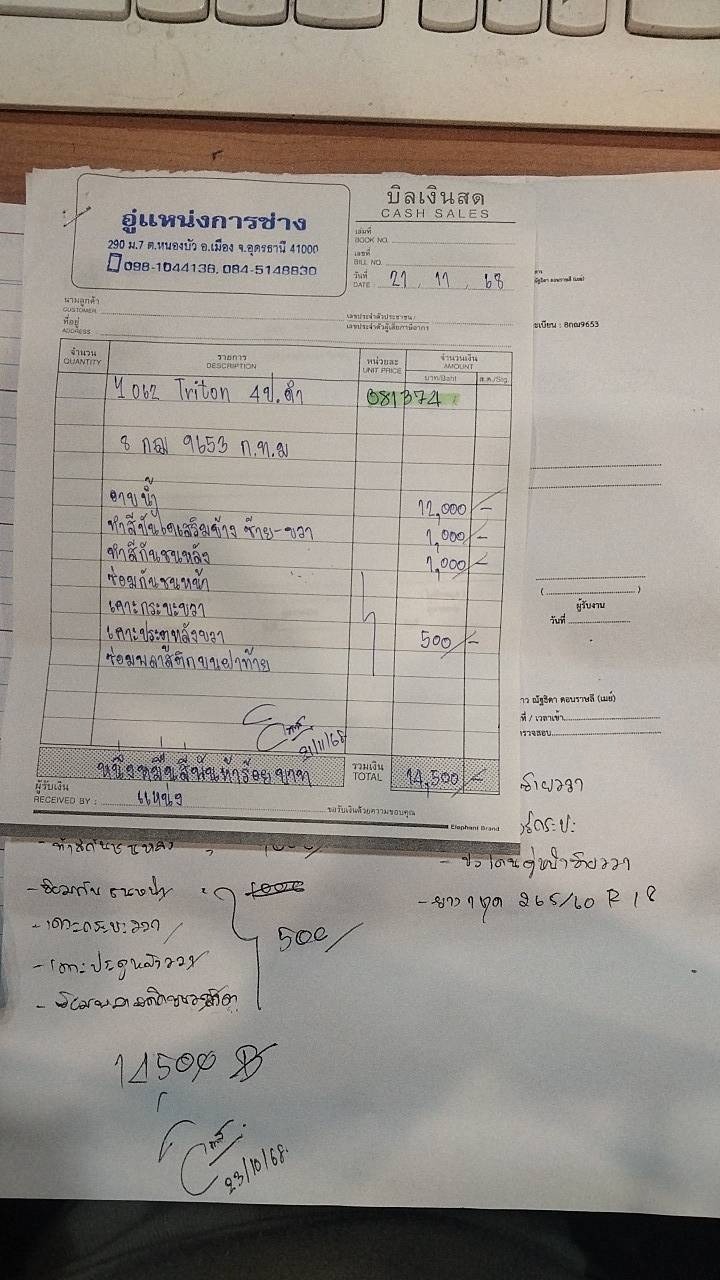 อู่แหน่งการช่าง
290 ม.7 ต.หนองบัว อ.เมือง จ.อุดรธานี 41000
098-1044136, 084-5148830
บิลเงินสด
CASH SALES
เล่มที่
BOOK NO.
เลขที่
BILL NO.
วันที่
DATE : 21 , 11 , 68
นามลูกค้า
CUSTOMER
ที่อยู่
ADDRESS
เลขประจำตัวประชาชน /
เลขประจำตัวผู้เสียภาษีอากร
จำนวน
QUANTITY
รายการ
DESCRIPTION
หน่วยละ
UNIT PRICE
จำนวนเงิน
AMOUNT
บาท/Baht
ส.ต./Stg.
Triton 4ป.ดำ 081374
8 กฌ 9653 ก.ท.ม
อาบน้ำ 12,000/-
ทำสีบันไดเสริมข้าง ซ้าย-ขวา 1,000/-
ทำสีกันชนหลัง 1,000/-
ซ่อมกันชนหน้า
เคาะกระบะขวา
เคาะประตูหลังขวา 500/-
ซ่อมพลาสติกบนฝาท้าย
21/11/68
หนึ่งหมื่นสี่พันห้าร้อยบาท
รวมเงิน
TOTAL 14,500/-
ผู้รับเงิน
RECEIVED BY : แหน่ง
ขอรับเงินด้วยความขอบคุณ
Elephant Brand
ะเบียน : 8กฌ9653
( )
ผู้รับงาน
วันที่
าว ณัฐธิดา ดอนราษลี (เมย์)
ที่ / เวลาเข้า
ตรวจสอบ
- ยาง 1 ชุด 265/60 R 18
- เคาะกระบะขวา
500/
14500 B
23/10/68